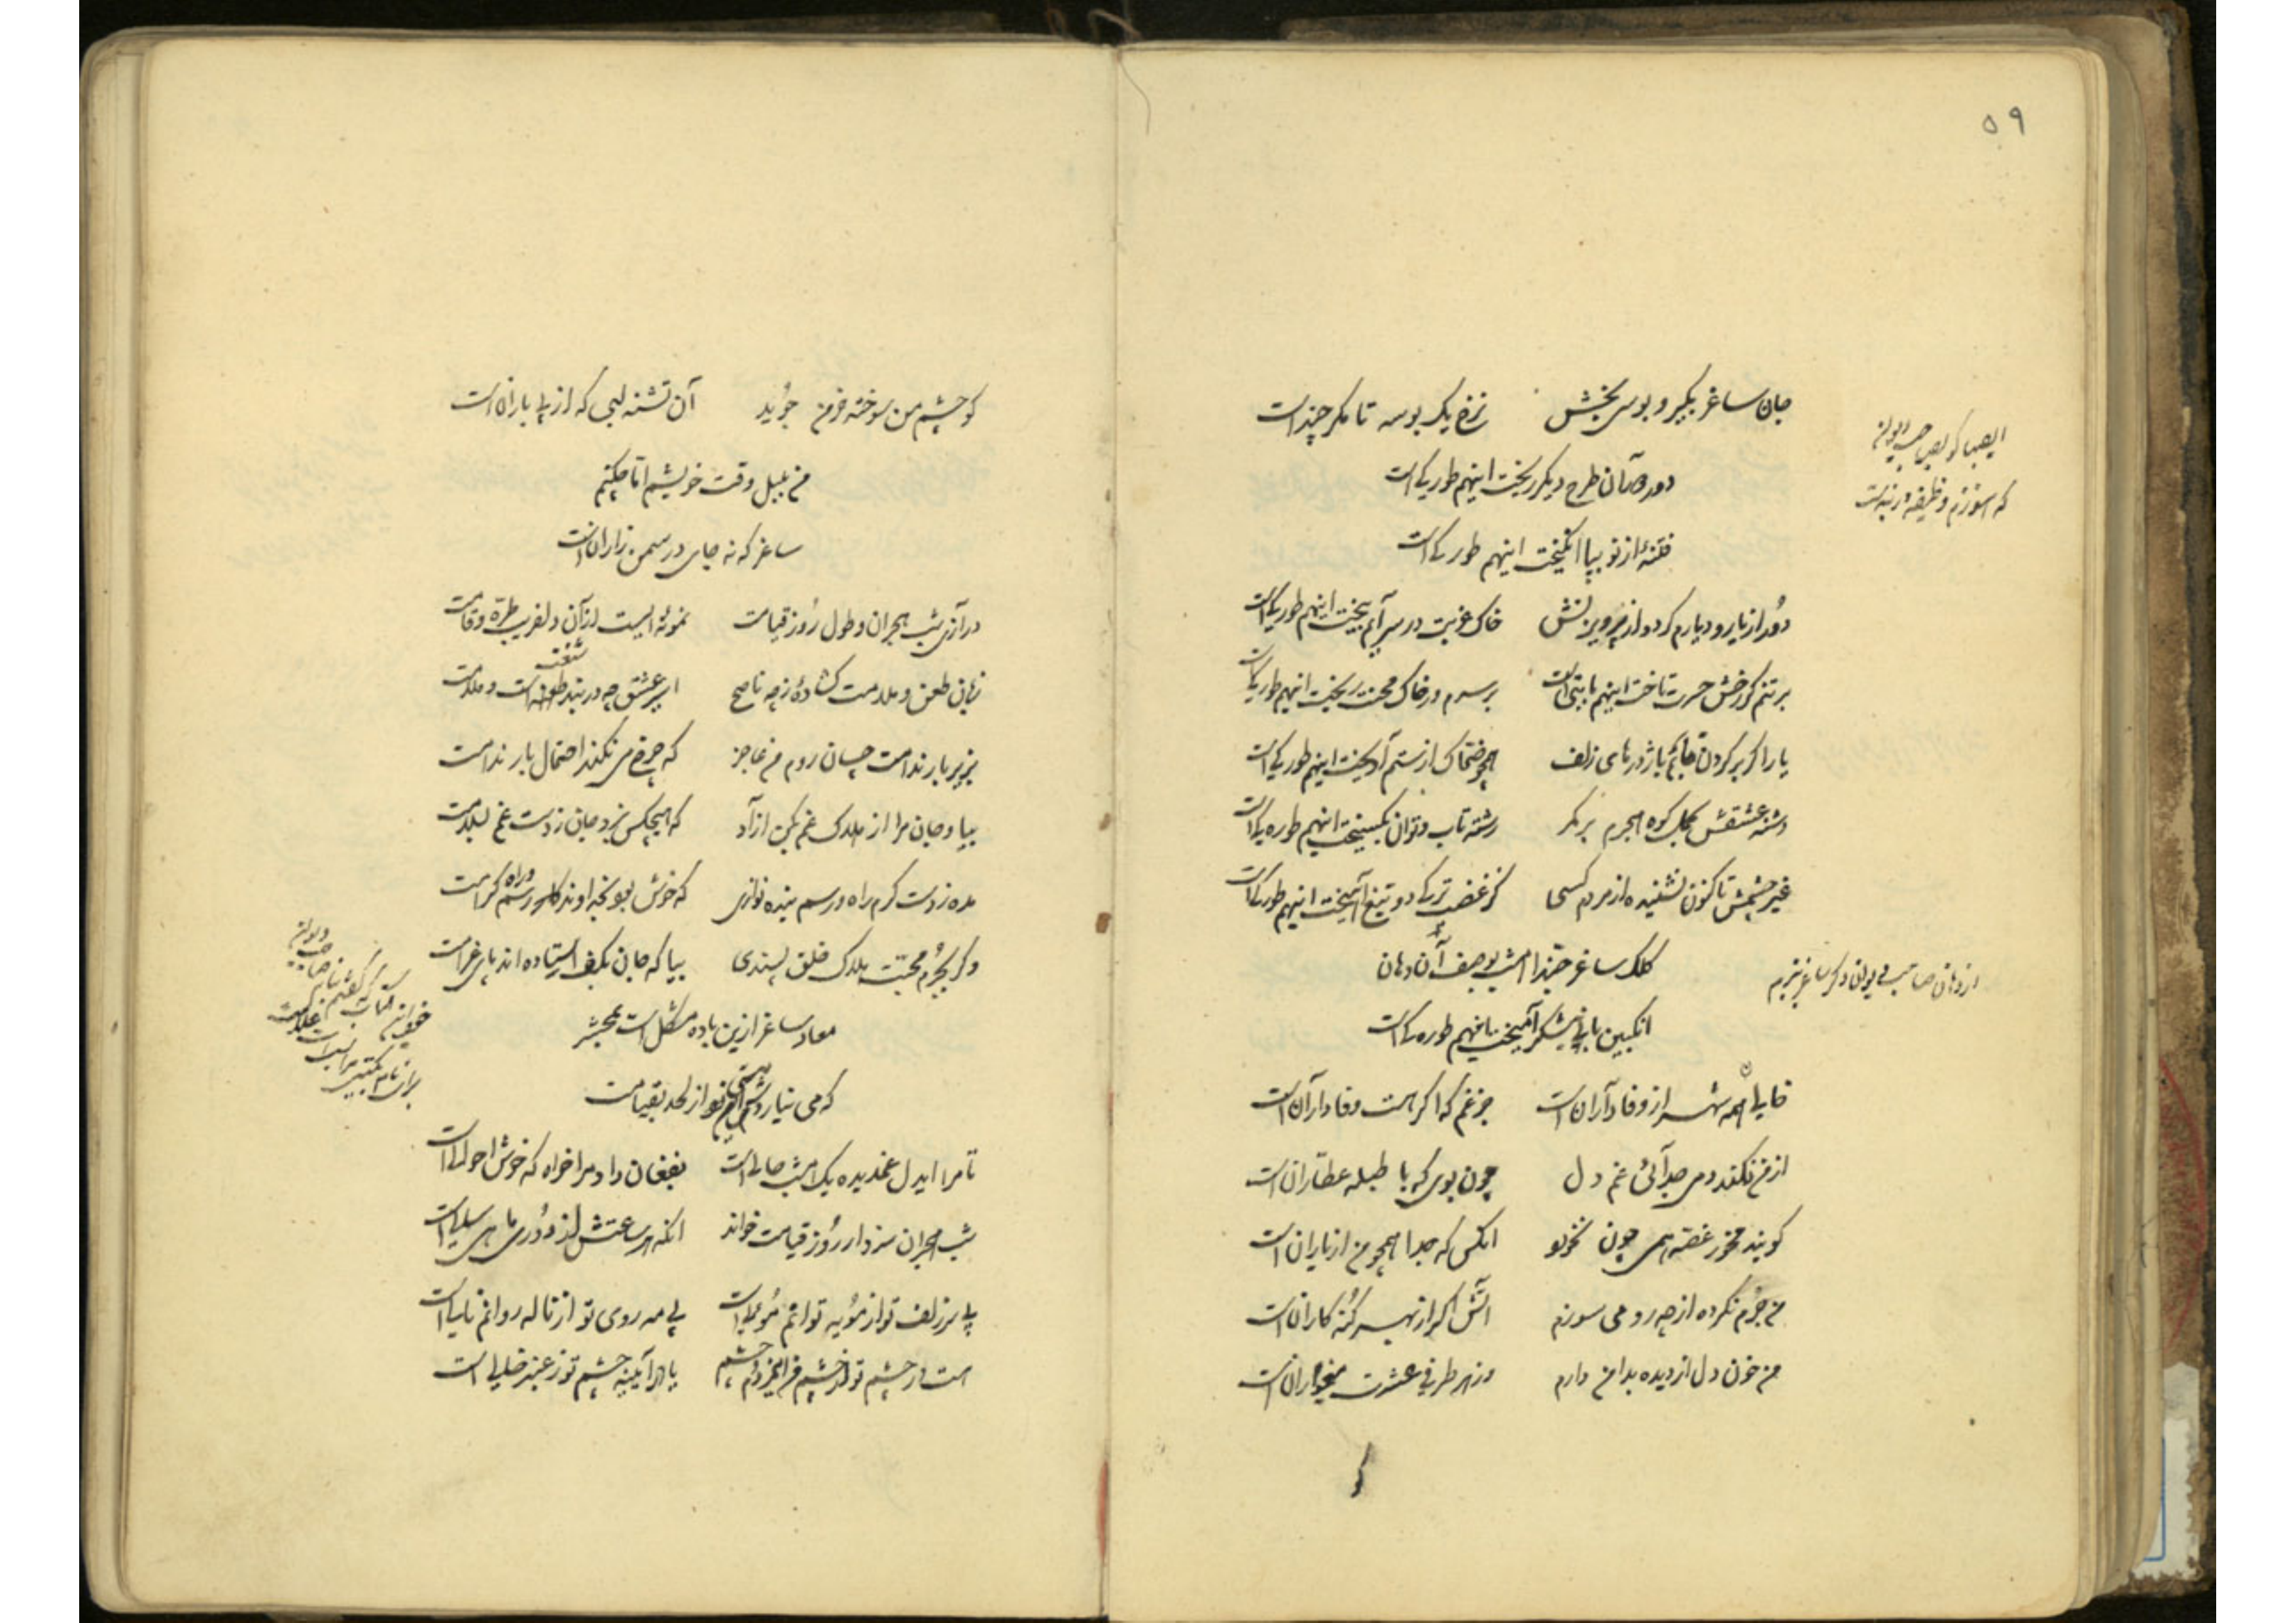 ۵۹
جان ساغر بگیر و بوسی بخش نرخ یک بوسه تا مگر چند است
دور آن طرح دیگر ریخت اینهم طوریکه است
فتنهٔ از نو بپا انگیخت اینهم طوریکه است
دور از یار و دیارم کرد و از پرویزنش خاک غربت در سرایم بیخت اینهم طوریکه است
بر تنم گر رخش حسرت تاخت اینهم بابتی است بر سرم ور خاک محنت ریخت اینهم طوریکه است
یا را گر بر گردن جانم باژدرهای زلف همچو ضحاک از ستم آویخت اینهم طوریکه است
دشنه عشقش بکوه هجرم بر کمر رشته تاب و توان بگسیخت اینهم طوریکه است
غیر چشمش تا کنون نشنیده از مردم کسی کز غضب ترکی دو تیغ آمیخت اینهم طوریکه است
کلک ساغر حبذا امشب بوصف آن دهان
از دهان صاحب دیوان دگر ساغر
انگبین با نیشکر آمیخت اینهم طوریکه است
خالی همه شهر از وفاداران است جز غم که اگر هست وفادار آن است
از من نکند دمی جدائی غم دل چون بوی که با طبله عطاران است
گویند مخور غصه همی چون نخورد انکس که جدا همچو من از یاران است
من جرم نکرده از چه رو می سوزم آتش اگر از بهر گنه کاران است
من خون دل از دیده بدامن دارم در هر طرفی عشرت میخواران است
کو
کو چشم من سوخته خرمن جوئید آن تشنه لبی که از پی باران است
من بلبل وقت خویشم اما چکنم
ساغر که نه جای در سمن زاران است
درازی شب هجران و طول روز قیامت نمونه ایست از آن دلفریب طره و قامت
زبان طعن و ملامت گشاده از چه ناصح اسیر عشق چه در بند طعنه است و ملامت
بزیر بار ندامت چسان روم من عاجز که چرخ می نکند احتمال بار ندامت
بیا و جان مرا از هلاک غم بکن آزاد که هیچکس نبرد جان ز دست غم بسلامت
مده ز دست کرم راه و رسم بنده نوازی که خوش بود بخداوندگار رسم و راه کرامت
وگر بجرم محبت هلاک خلق پسندی بیا که جان بکف استاده اند بهر غرامت
معاد ساغر ازین باده مشکل است بمحشر
که می نیارد از لحد بقیامت
تا مرا ایدل غمدیده یک امشب حالی است بفغان داد مرا خواه که خوش احوالی است
شب هجران سزد ار روز قیامت خواند آنکه هر ساعتش از دوری ماهی سالی است
بی سر زلف تو از مویه توانم موئی است بی مه روی تو از ناله روانم نالی است